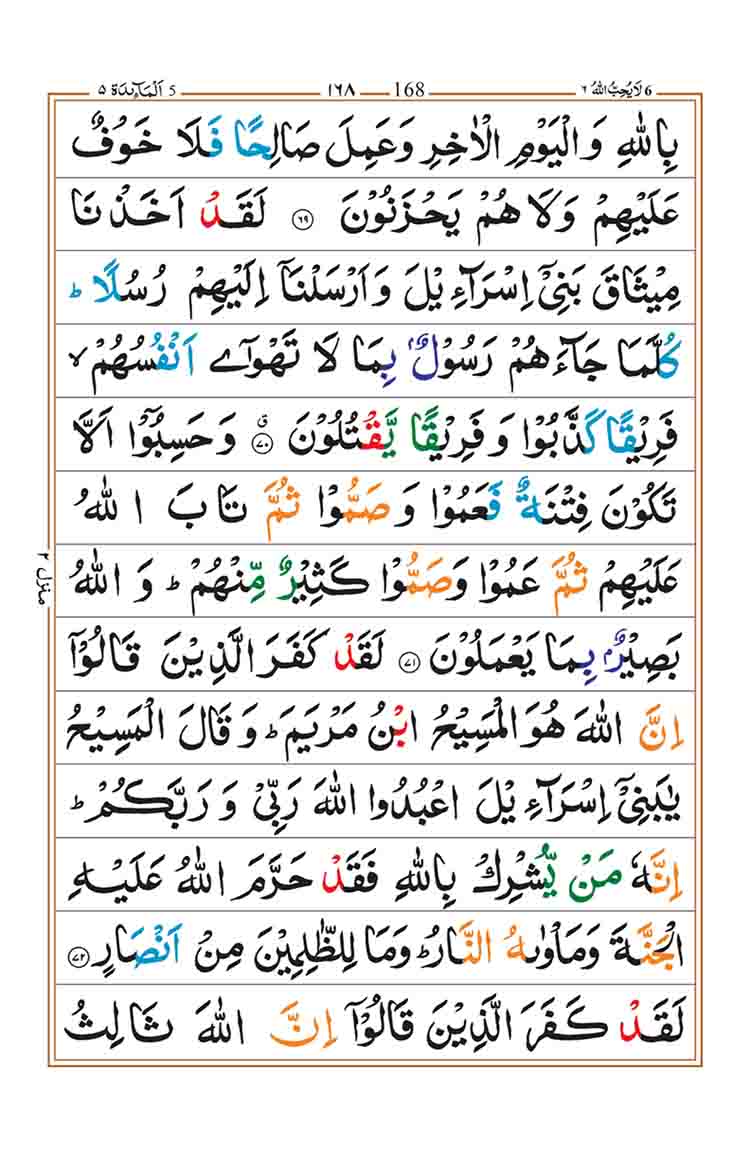 5 اَلْمَآئِدَة ٥ ١٦٨ 168 6 لَا يُحِبُّ اللهُ ٦
بِاللهِ وَالْيَوْمِ الْاٰخِرِ وَعَمِلَ صَالِحًا فَلَا خَوْفٌ
عَلَيْهِمْ وَلَا هُمْ يَحْزَنُوْنَ ٦٩ لَقَدْ اَخَذْنَا
مِيْثَاقَ بَنِيْٓ اِسْرَآءِيْلَ وَاَرْسَلْنَآ اِلَيْهِمْ رُسُلًا ؕ
كُلَّمَا جَآءَهُمْ رَسُوْلٌۢ بِمَا لَا تَهْوٰٓى اَنْفُسُهُمْ ۙ
فَرِيْقًا كَذَّبُوْا وَفَرِيْقًا يَّقْتُلُوْنَ ٧٠ ق وَحَسِبُوْٓا اَلَّا
تَكُوْنَ فِتْنَةٌ فَعَمُوْا وَصَمُّوْا ثُمَّ تَابَ اللهُ
عَلَيْهِمْ ثُمَّ عَمُوْا وَصَمُّوْا كَثِيْرٌ مِّنْهُمْ ؕ وَاللهُ
بَصِيْرٌۢ بِمَا يَعْمَلُوْنَ ٧١ لَقَدْ كَفَرَ الَّذِيْنَ قَالُوْٓا
اِنَّ اللهَ هُوَ الْمَسِيْحُ ابْنُ مَرْيَمَ ؕ وَقَالَ الْمَسِيْحُ
يٰبَنِيْٓ اِسْرَآءِيْلَ اعْبُدُوا اللهَ رَبِّيْ وَرَبَّكُمْ ؕ
اِنَّهٗ مَنْ يُّشْرِكْ بِاللهِ فَقَدْ حَرَّمَ اللهُ عَلَيْهِ
الْجَنَّةَ وَمَاْوٰىهُ النَّارُ ؕ وَمَا لِلظّٰلِمِيْنَ مِنْ اَنْصَارٍ ٧٢
لَقَدْ كَفَرَ الَّذِيْنَ قَالُوْٓا اِنَّ اللهَ ثَالِثُ
منزل ٢